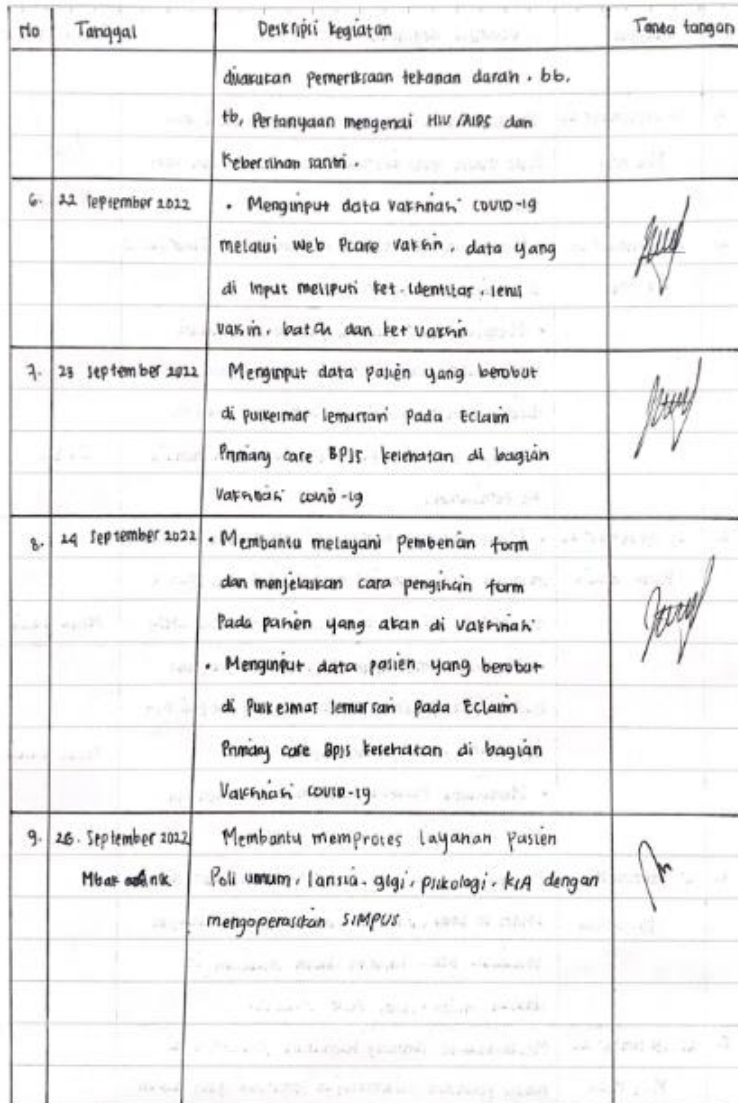 No Tanggal Deskripsi kegiatan Tanda tangan
dilakukan pemeriksaan tekanan darah, bb,
tb, Pertanyaan mengenai HIV/AIDS dan
Kebersihan santri.
6. 22 September 2022 • Menginput data vaksinasi COVID-19
melalui Web Pcare Vaksin, data yang
di input meliputi ket. Identitas, Jenis
vaksin, batch dan ket vaksin
7. 23 September 2022 Menginput data pasien yang berobat
di puskesmas lemursari Pada Eclaim
Primary care BPJS kesehatan di bagian
Vaksinasi covid-19
8. 24 September 2022 • Membantu melayani Pemberian form
dan menjelaskan cara pengisian form
Pada pasien yang akan di vaksinasi
• Menginput data pasien yang berobat
di Puskesmas lemursari Pada Eclaim
Primary care BPJS kesehatan di bagian
Vaksinasi covid-19
9. 26. September 2022 Membantu memproses layanan pasien
Mbak Anik Poli umum, lansia, gigi, psikologi, KIA dengan
mengoperasikan SIMPUS